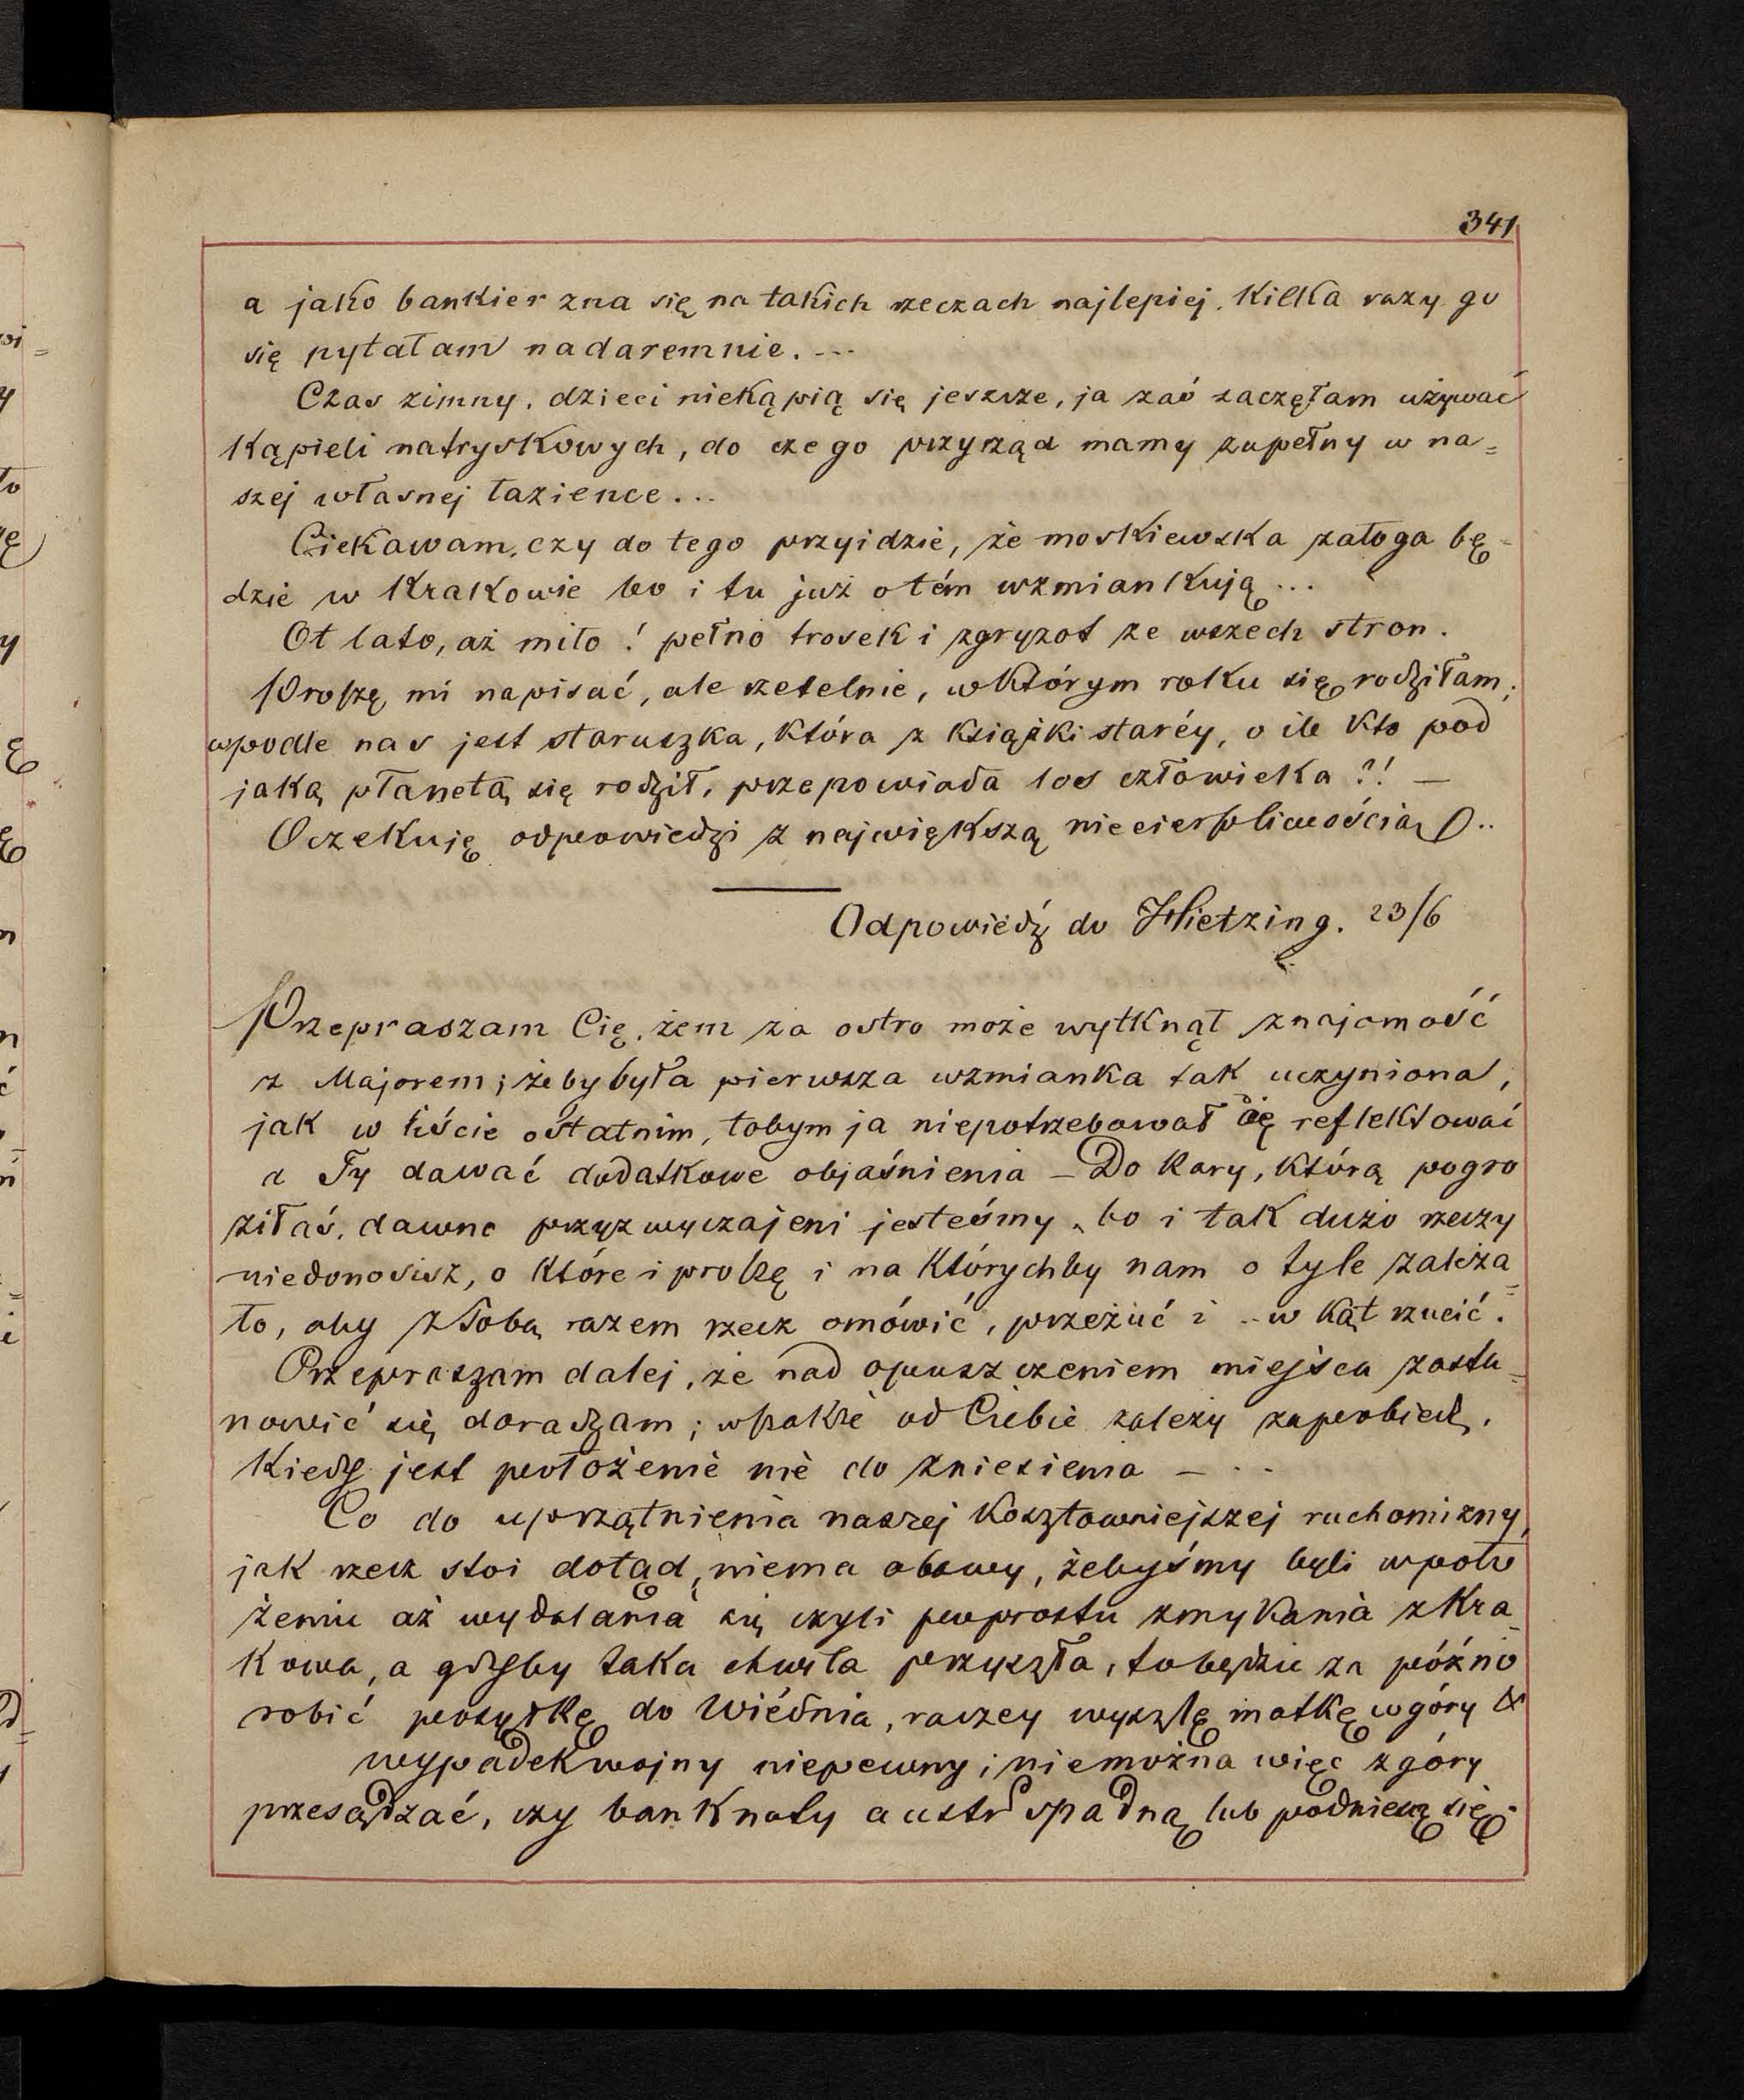 341
a jako bankier zna się na takich rzeczach najlepiej. Kilka razy go
się pytałam nadaremnie. ---
Czas zimny, dzieci niekąpią się jeszcze, ja zaś zaczęłam używać
Kąpieli natryskowych, do czego przyrząd mamy zupełny w na=
szej własnej łazience...
Ciekawam, czy do tego przyidzie, że moskiewska załoga bę=
dzie w Krakowie bo i tu już o tém wzmiankują...
Ot lato, aż miło! pełno trosek i zgryzot ze wszech stron.
Proszę mi napisać, ale rzetelnie, w którym roku się rodziłam;
wpodle nas jest staruszka, która z książki staréy, o ile kto pod
jaką płanetą się rodził, przepowiada los człowieka?! —
Oczekuję odpowiedzi z największą niecierpliwością O..
Odpowiedź do Hietzing. 23/6
Przepraszam Cię, żem za ostro może wytknął znajomość
z Majorem; żeby była pierwsza wzmianka tak uczyniona,
jak w liście ostatnim, tobym ja niepotrzebował Cię reflektować
a Ty dawać dodatkowe objaśnienia — Do kary, którą pogro
ziłaś, dawno przyzwyczajeni jesteśmy, bo i tak dużo rzeczy
niedonosisz, o które i proszę i na którychby nam o tyle zależa=
ło, aby z Tobą razem rzecz omówić, przeżuć i .. w kąt rzucić.
Przepraszam dalej, że nad opuszczeniem miejsca zasta=
nowić się doradzam; wszakże od Ciebie zależy zapobiedz,
Kiedy jest położenie nie do zniesienia — ..
Co do uprzątnienia naszej kosztowniejszej ruchomizny,
jak rzecz stoi dotąd, niema obawy, żebyśmy byli w poło
żeniu aż wydalania się czyli poprostu zmykania z Kra=
kowa, a gdyby taka chwila przyszła, to będzie za późno
robić posyłkę do Wiédnia, raczey wyszlę matkę w góry &
wypadek wojny niepewny; niemożna więc z góry
przesądzać, czy banknoty austr spadną lub podniesą się.